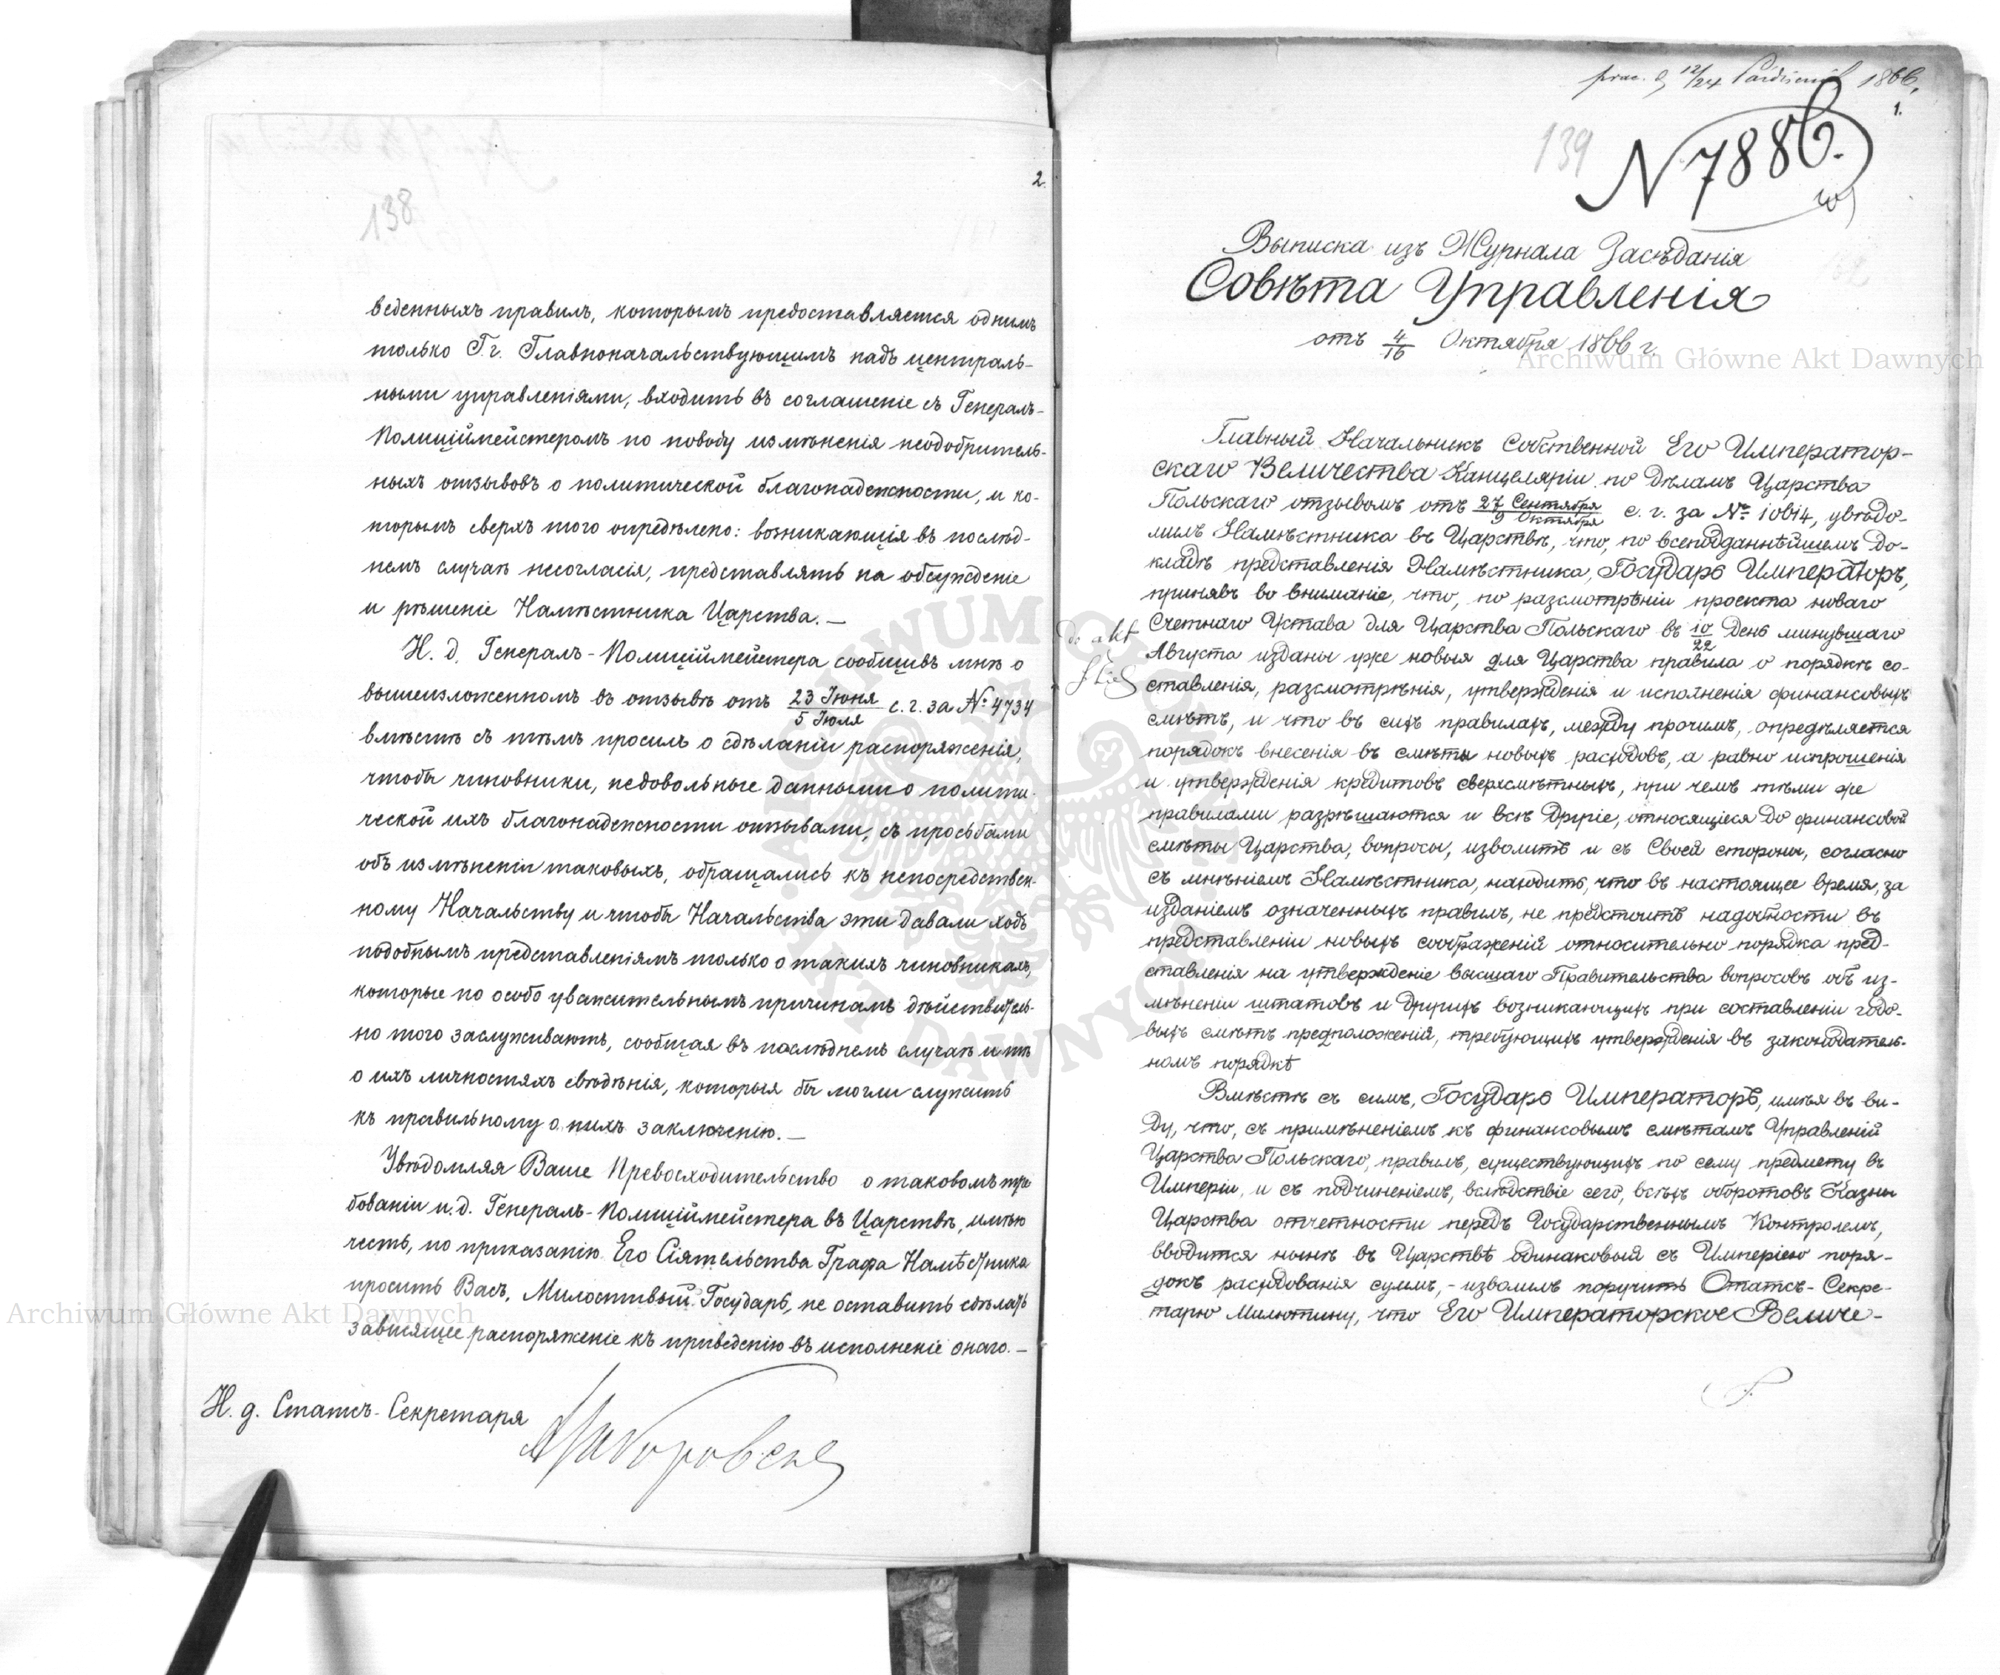 2.
138
веденныхъ правилъ, которымъ предоставляется однимъ
только Г.г. Главноначальствующимъ надъ централь-
ными управленіями, входить въ соглашеніе съ Генералъ-
Полиціймейстеромъ по поводу измѣненія неодобритель-
ныхъ отзывовъ о политической благонадежности, и ко-
торымъ сверхъ того опредѣлено: возникающія въ послѣд-
немъ случаѣ несогласія, представлять на обсужденіе
и рѣшеніе Намѣстника Царства. —
И. д. Генералъ-Полиціймейстера сообщивъ мнѣ о
вышеизложенномъ въ отзывѣ отъ 23 Іюня / 5 Іюля с. г. за № 4734
вмѣстѣ съ тѣмъ просилъ о сдѣланіи распоряженія,
чтобы чиновники, недовольные данными о полити-
ческой ихъ благонадежности отзывами, съ просьбами
объ измѣненіи таковыхъ, обращались къ непосредствен-
ному Начальству и чтобы Начальства эти давали ходъ
подобнымъ представленіямъ только о такихъ чиновникахъ,
которые по особо уважительнымъ причинамъ дѣйствитель-
но того заслуживаютъ, сообщая въ послѣднемъ случаѣ и тѣ
о ихъ личностяхъ свѣдѣнія, которыя бы могли служить
къ правильному о нихъ заключенію. —
Увѣдомляя Ваше Превосходительство о таковомъ тре-
бованіи и. д. Генералъ-Полиціймейстера въ Царствѣ, имѣю
честь, по приказанію Его Сіятельства Графа Намѣстника
просить Васъ, Милостивый Государь, не оставить сдѣлать
зависящее распоряженіе къ приведенію въ исполненіе онаго. —
И. д. Статсъ-Секретаря
prac. d. 12/24 Października 1866.
1.
139
N 7886.
Выписка изъ Журнала Засѣданія
Совѣта Управленія
отъ 4/16 Октября 1866 г.
Главный Начальникъ Собственной Его Император-
скаго Величества Канцеляріи по дѣламъ Царства
Польскаго отзывомъ отъ 27 Сентября / 9 Октября с. г. за № 10614, увѣдо-
милъ Намѣстника въ Царствѣ, что, по всеподданнѣйшемъ до-
кладѣ представленія Намѣстника, Государь Императоръ,
принявъ во вниманіе, что, по разсмотрѣніи проекта новаго
Счетнаго Устава для Царства Польскаго въ 10/22 день минувшаго
Августа изданы уже новыя для Царства правила о порядкѣ со-
ставленія, разсмотрѣнія, утвержденія и исполненія финансовыхъ
смѣтъ, и что въ сихъ правилахъ, между прочимъ, опредѣляется
порядокъ внесенія въ смѣты новыхъ расходовъ, а равно испрошенія
и утвержденія кредитовъ сверхсмѣтныхъ, при чемъ тѣми же
правилами разрѣшаются и всѣ другіе, относящіеся до финансовой
смѣты Царства, вопросы, изволитъ и съ Своей стороны, согласно
съ мнѣніемъ Намѣстника, находить, что въ настоящее время, за
изданіемъ означенныхъ правилъ, не предстоитъ надобности въ
представленіи новыхъ соображеній относительно порядка пред-
ставленія на утвержденіе высшаго Правительства вопросовъ объ из-
мѣненіи штатовъ и другихъ возникающихъ при составленіи годо-
выхъ смѣтъ предположеній, требующихъ утвержденія въ законодатель-
номъ порядкѣ
Вмѣстѣ съ симъ, Государь Императоръ, имѣя въ ви-
ду, что, съ примѣненіемъ къ финансовымъ смѣтамъ Управленій
Царства Польскаго, правилъ, существующихъ по сему предмету въ
Имперіи, и съ подчиненіемъ, вслѣдствіе сего, всѣхъ оборотовъ Казны
Царства отчетности передъ Государственнымъ Контролемъ,
вводится нынѣ въ Царствѣ одинаковый съ Имперіею поря-
докъ расходованія суммъ, - изволилъ поручить Статсъ-Секре-
тарю Милютину, что Его Императорское Величе-
do akt
Archiwum Główne Akt Dawnych
Archiwum Główne Akt Dawnych
ARCHIWUM GŁÓWNE AKT DAWNYCH